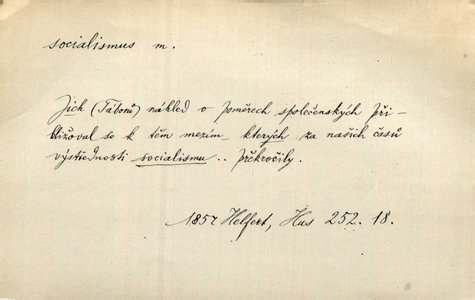 socialismus m.
Jich (Táborů) náhled o poměrech společenských při-
bližoval se k těm mezím kterých za našich časů
výstřednosti socialismu .. překročily.
1857 Helfert, Hus 252. 18.